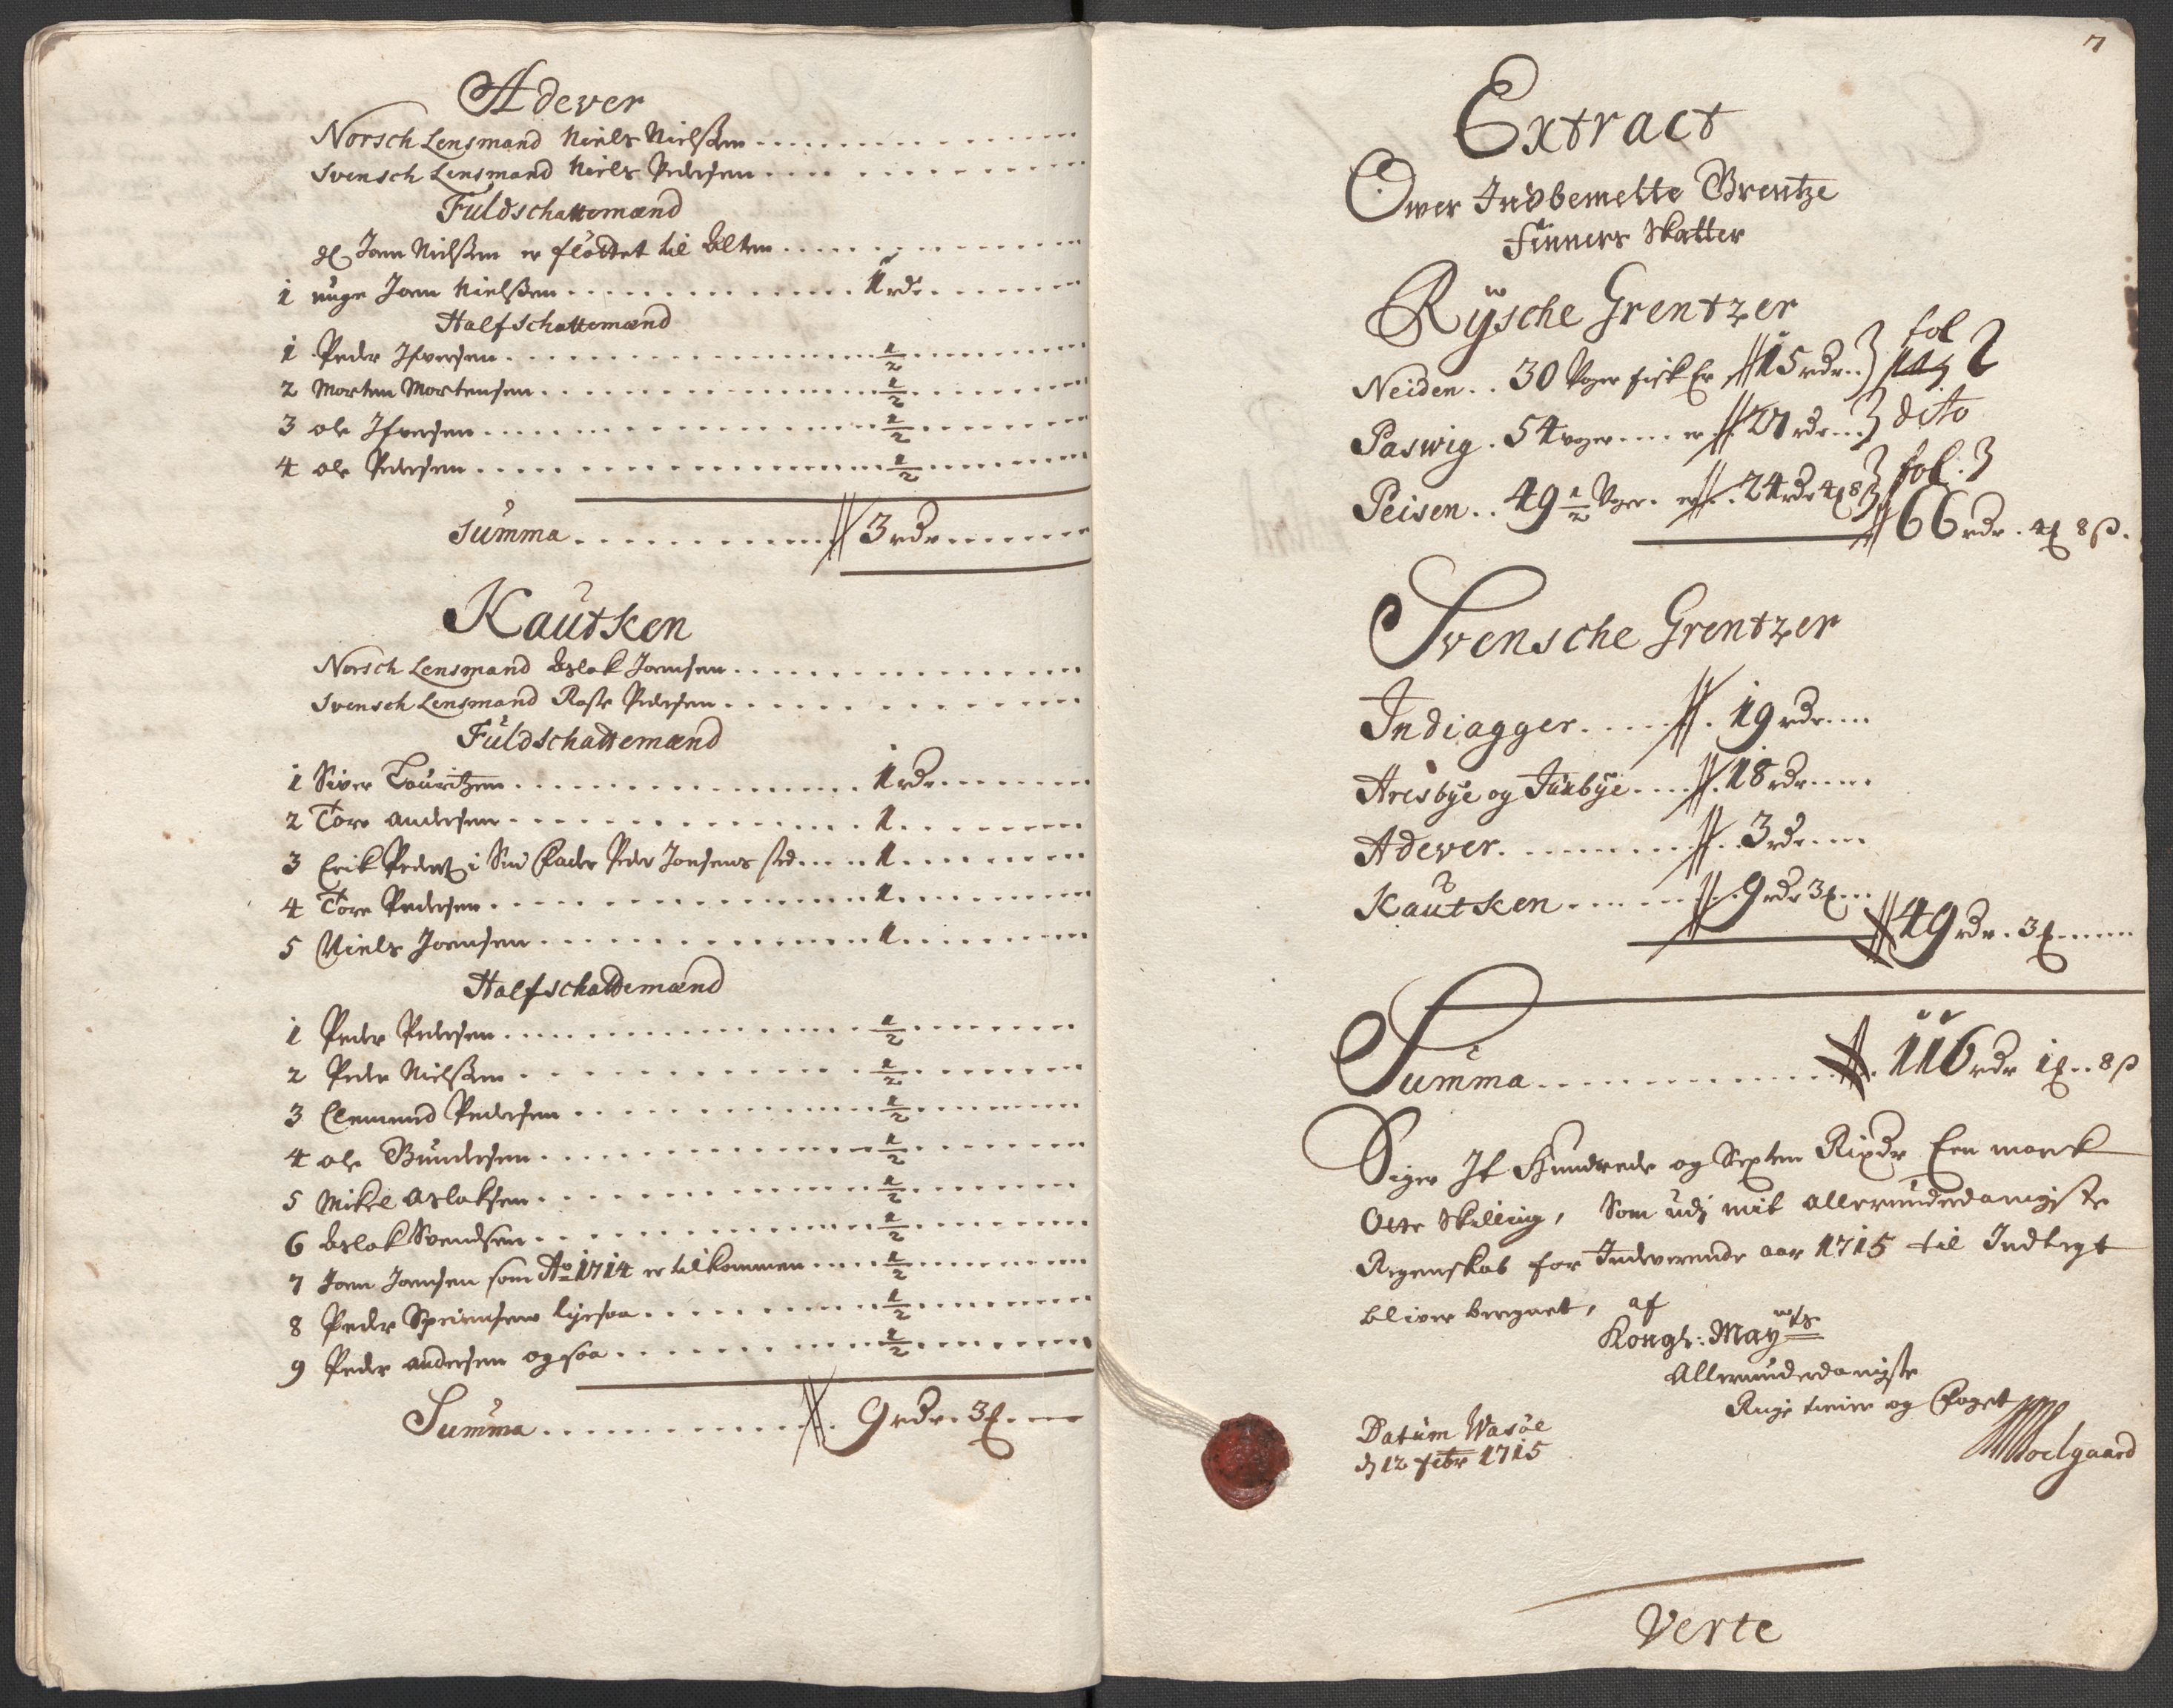 Adever
Norsch Lensmand Niels Nielsen
Svensch Lensmand Niels Pedersen
Fuldschattemænd
gl Joen Nielsen er flöttet til Alten
1 unge Joen Nielsen 1 rdr
Halfschattemænd
1 Peder Ifversen 1/2
2 Morten Mortensen 1/2
3 ole Ifversen 1/2
4 ole Pedersen 1/2
Summa 3 rdr
Kautken
Norsch Lensmand Aslak Joensen
Svensch Lensmand Raste Pedersen
Fuldschattemænd
1 Siver Lauritzen 1 rdr
2 Tore Andersen 1
3 Erik Peders: i Sin Fader Peder Jonsens sted 1
4 Tore Pedersen 1
5 Niels Joensen 1
Halfschattemænd
1 Peder Pedersen 1/2
2 Peder Nielsen 1/2
3 Clemend Pedersen 1/2
4 ole Gundersen 1/2
5 Mikel Aslaksen 1/2
6 Aslak Svendsen 1/2
7 Joen Joensen som Ao 1714 er tilkommen 1/2
8 Peder ligesaa 1/2
9 Peder Andersen ogsaa 1/2
Summa 9 rdr 3 ₰
7
Extract
Ower Indbemelte Grentze
Finners Skatter
Rysche Grentzer
Neiden 30 Voger fisk Er 15 rdr fol 2
Paswig 54 voger er 27 rdr dito
Peisen 49 1/2 Voger er 24 rdr 4 ₰ 8 fol: 3
66 rdr 4 ₰ 8 β
Svensche Grentzer
Indiagger 19 rdr
Aresbye og Juxbye 18 rdr
Adever 3 rdr
Kautken 9 rdr 3 ₰
49 rdr 3 ₰
Summa 116 rdr 1 ₰ 8 β
Siger It Hundrede og Sexten Rixdr Een marck
Otte Skilling, Som udj mit allerunderdanigste
Regenskab for Indeverende aar 1715 til Indtegt
bliver beregnet, af
Kongl: Mayts
Allerunderdanigste
og Foget
Soelgaard
Datum Wasöe
d 12 febr 1715
Verte